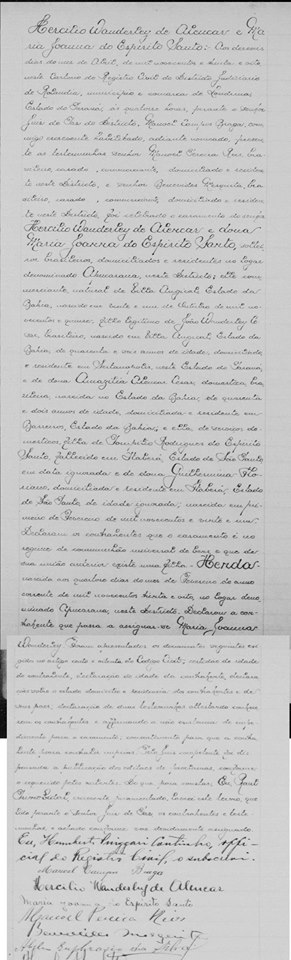 Hercilio Wanderley de Alencar e Ma
ria Joanna do Espirito Santo:- Aos dezoito
dias do mez de Abril, de mil novecentos e trinta e oito,
neste Cartorio do Registro Civil do districto Judiciario
de Rolandia, municipio e comarca de Londrina,
Estado do Paraná, ás quatorze horas, perante o senhor
Juiz de Paz do districto, Manoel Campos Braga, com
migo escrevente habilitado, adiante nomeado, presen
te as testemunhas senhor Manoel Pereira Rios, bra
sileiro, casado, commerciante, domiciliado e residen
te neste districto, e senhor Benevides Mesquita, bra
sileiro, casado, commerciante, domiciliado e residen
te neste districto, foi celebrado o casamento do senhor
Hercilio Wanderley de Alencar e dona
Maria Joanna do Espirito Santo, soltei
ros, brasileiros, domiciliados e residentes no logar
denominado Apucarana, neste districto; elle com
merciante, natural de Villa Angical, Estado da
Bahia, nascido em vinte e um de Outubro de mil no
vecentos e quinze, filho legitimo de João Wanderley Ce
zar, brasileiro, nascido em Villa Angical, Estado da
Bahia, de quarenta e seis annos de idade, domiciliado
e residente em Sertanopolis, neste Estado do Paraná,
e de dona Amazilia Alencar Cezar, domestica, bra
sileira, nascida no Estado da Bahia, de quarenta
e dois annos de idade, domiciliada e residente em
Barreiras, Estado da Bahia; e ella de serviços do
mesticos, filha de Pompilio Rodrigues do Espirito
Santo, fallecido em Itaberá, Estado de São Paulo
em data ignorada e de dona Guilhermina Flo
riano, domiciliada e residente em Itaberá, Estado
de São Paulo, de idade ignorada; nascida em pri
meiro de Fevereiro de mil novecentos e vinte e um.
Declararam os contrahentes que o casamento é no
regime de communhão universal de bens e que de
sua união anterior existe uma filha - Herda
nascida aos quatorze dias do mez de Fevereiro do anno
corrente de mil novecentos trinta e oito, no logar deno
minado Apucarana, neste districto. Declarou a con
trahente que passa a assignar-se Maria Joanna
Wanderley. Foram apresentados os documentos exigidos
no artigo cento e oitenta do Codigo Civil; certidão de idade
do contrahente, declaração de idade da contrahente, declara
ções sobre o estado, domicilio e residencia dos contrahentes e de
seus paes, declaração de duas testemunhas attestando conhece
rem os contrahentes e affirmando a não existencia de impe
dimento para o casamento, consentimento para que a contra
hente possa contrahir nupcias
a publicação dos editaes de proclamas, conforme
o requerido pelos nubentes. Do que, para constar, Eu,
escrevente juramentado, lavrei este termo, que
lido perante o senhor Juiz de Paz, os contrahentes e teste
munhas, e achado conforme vae devidamente assignado.
Eu, Coutinho, offi
cial do Registro Civil, o subscrevi.
Manoel Campos Braga
Hercilio Wanderley de Alencar
Maria Joanna do Espirito Santo
Manoel Pereira Rios
Benevides Mesquita
da Silva